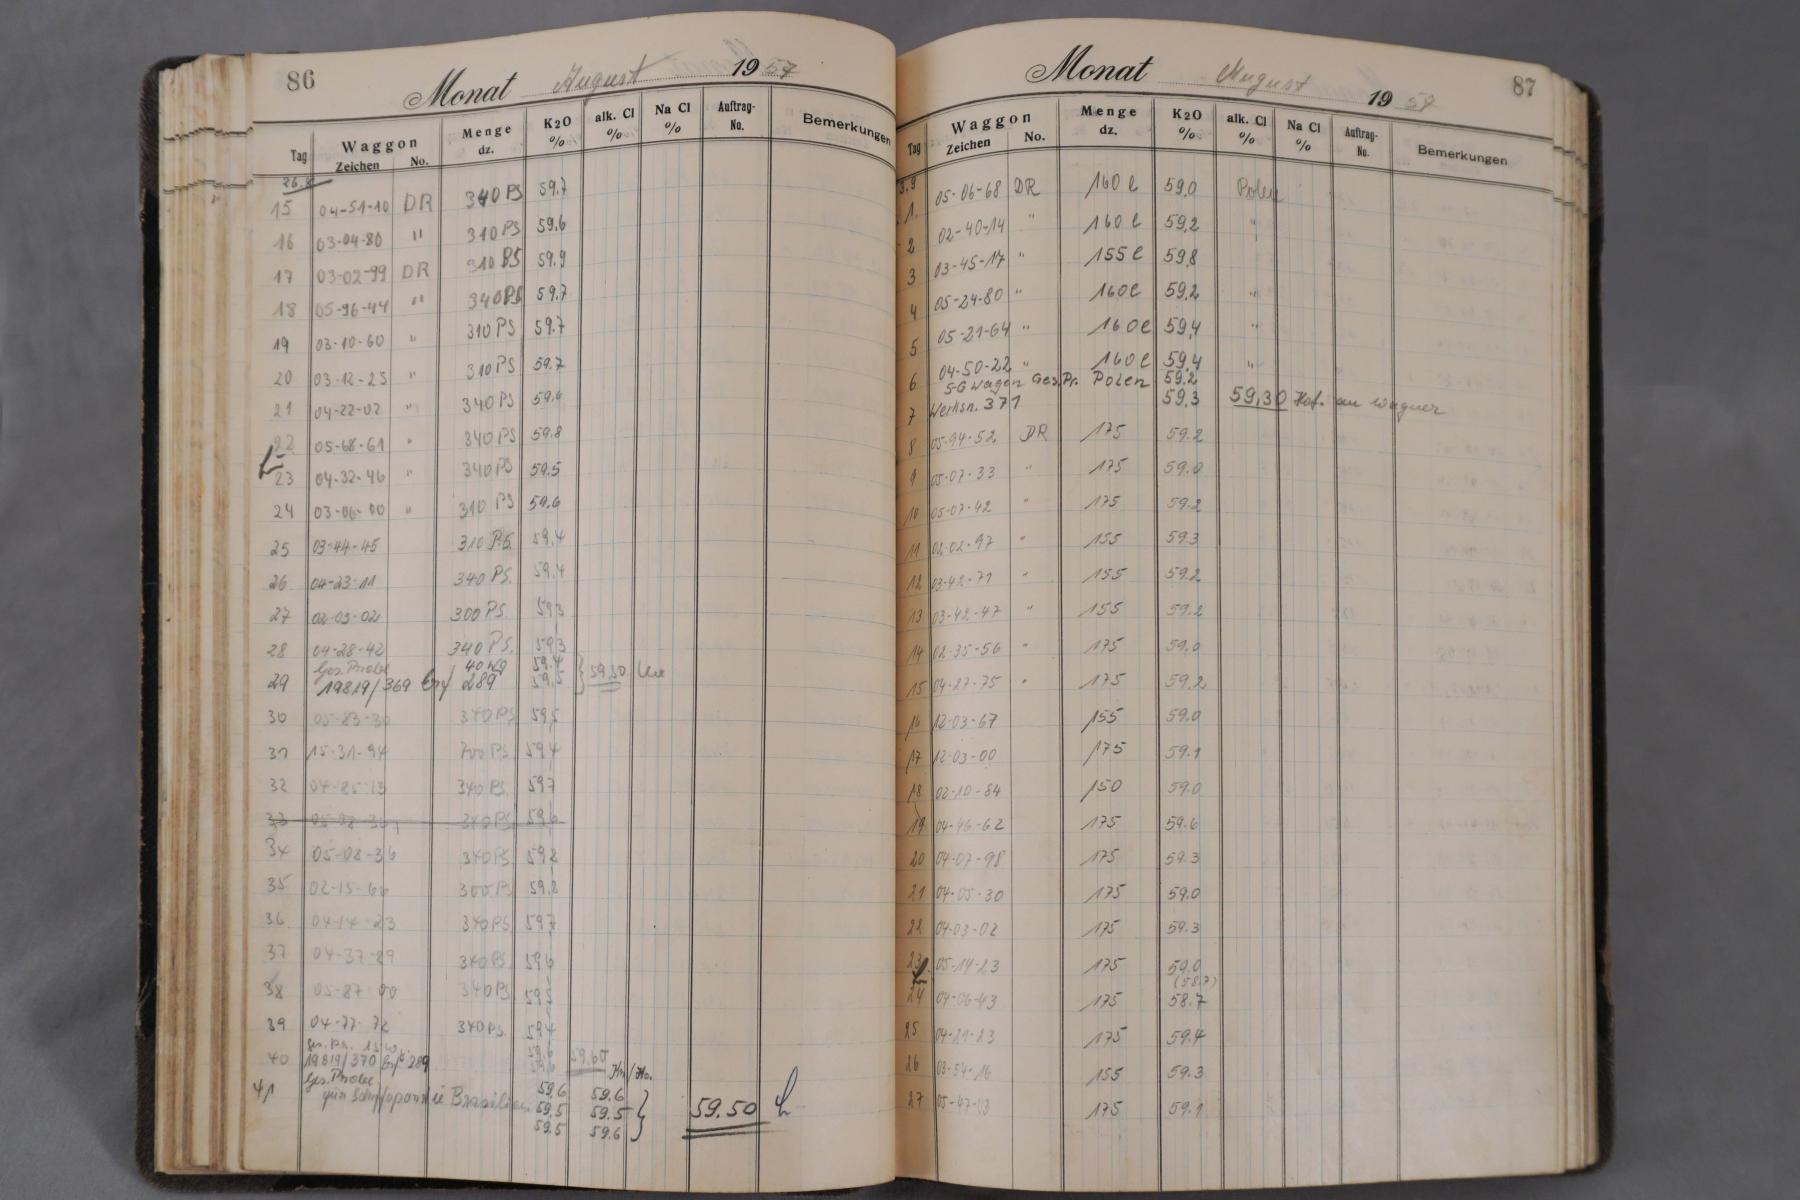 86
Monat August 1957
Tag Waggon Zeichen No. Menge dz. K2O % alk. Cl % Na Cl % Auftrag-No. Bemerkungen
26.8
15 04-51-10 DR 340 PS 59.7
16 03-04-80 " 310 PS 59.6
17 03-02-99 DR 310 PS 59.9
18 05-96-44 " 340 PS 59.7
19 03-10-60 " 310 PS 59.7
20 03-12-25 " 310 PS 59.7
21 04-22-02 " 340 PS 59.6
22 05-68-61 " 340 PS 59.8
23 04-32-46 " 340 PS 59.5
24 03-06-00 " 310 PS 59.6
25 03-44-45 310 P.S. 59.4
26 04-23-11 340 PS. 59.4
27 02-03-02 300 PS. 59,3
28 04-28-42 340 PS. 59,3
Ges. Probe 40 Wg 59.4
29 19819/369 289 59,5 } 59.50
30 05-83-30 340 PS 59,5
31 15-31-94 700 PS 59,4
32 04-85-13 340 PS. 59,7
33 340 PS 59,6
34 05-08-36 340 PS 59,8
35 02-15-66 300 PS 59,8
36 04-14-23 340 PS. 59,7
37 04-37-89 340 PS. 59,6
38 05-87-00 340 PS 59,5
39 04-77-72 340 PS. 59,4
Ges. Pr. 15 W. 59,6
40 19819/370 289 59,6 59,60
Ges. Probe
41 Brasilien 59.6 59.6
59.5 59.5 } 59.50
59.5 59.6
87
Monat August 1957
Tag Waggon Zeichen No. Menge dz. K2O % alk. Cl % Na Cl % Auftrag-No. Bemerkungen
3.9
1. 05-06-68 DR 160 l 59,0 Polen
2 02-40-14 " 160 l 59,2 "
3 03-45-17 " 155 l 59,8
4 05-24-80 " 160 l 59,2 "
5 05-21-64 " 160 l 59,4 "
6 04-50-22 " 160 l 59,4 "
5-6 Wagen Ges. Pr. Polen 59.2
7 Werksn. 371 59.3 59,30 an Wagner
8 05-94-52 DR 175 59.2
9 05-07-33 " 175 59.0
10 05-07-42 " 175 59.2
11 02-02-97 " 155 59.3
12 03-42-71 " 155 59.2
13 03-42-47 " 155 59.2
14 02-35-56 " 175 59.0
15 04-27-75 " 175 59,2
16 12-03-67 155 59.0
17 12-03-00 175 59.1
18 02-10-84 150 59.0
19 04-46-62 175 59.6
20 04-07-98 175 59.3
21 04-05-30 175 59.0
22 04-03-02 175 59.3
23 05-14-23 175 59.0
(58.7)
24 04-06-43 175 58.7
25 04-21-23 175 59.4
26 03-54-16 155 59.3
27 05-47-03 175 59.1